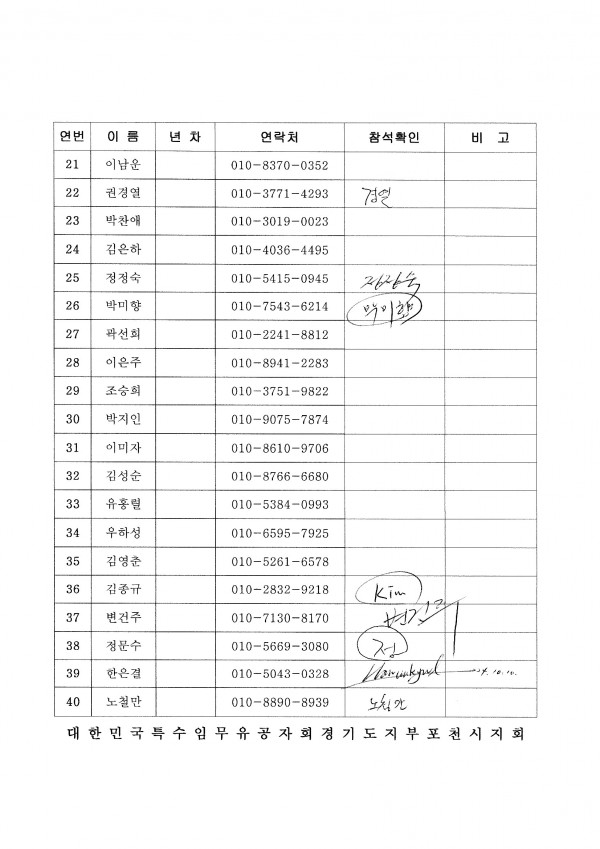 연번 이 름 년 차 연락처 참석확인 비 고
21 이남운 010-8370-0352
22 권경열 010-3771-4293 경열
23 박찬애 010-3019-0023
24 김은하 010-4036-4495
25 정정숙 010-5415-0945 정정숙
26 박미향 010-7543-6214 박미향
27 곽선희 010-2241-8812
28 이은주 010-8941-2283
29 조승희 010-3751-9822
30 박지인 010-9075-7874
31 이미자 010-8610-9706
32 김성순 010-8766-6680
33 유홍렬 010-5384-0993
34 우하성 010-6595-7925
35 김영춘 010-5261-6578
36 김종규 010-2832-9218 Kim
37 변건주 010-7130-8170
38 정문수 010-5669-3080 정
39 한은결 010-5043-0328
40 노철만 010-8890-8939 노철만
대한민국특수임무유공자회경기도지부포천시지회